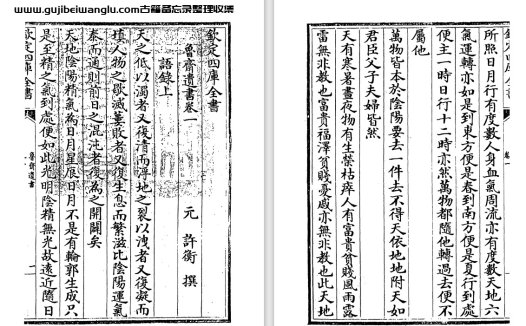 www.gujibeiwanglu.com古籍备忘录整理收集
欽定四庫全書
魯齋遺書卷一
元 許衡 撰
語錄上
天之低以濁者又復清而浮地之裂以洩者又復凝而
填人物之歇滅萎敗者又復生息而繁滋比陰陽運氣
泰而通則前日之混沌者復為之開闢矣
天地陰陽精氣為日月星辰日月不是有輪郭生成只
是至精之氣到處便如此光明陰精無光故遠近隨日
欽定四庫全書
魯齋遺書
所照日月行有度數人身血氣周流亦有度數天地六
氣運轉亦如是到東方便是春到南方便是夏行到處
便主一時日行十二時亦然萬物都隨他轉過去便不
屬他
萬物皆本於陰陽要去一件去不得天依地地附天如
君臣父子夫婦皆然
天有寒暑晝夜物有生榮枯瘁人有富貴貧賤風雨露
雷無非教也富貴福澤貧賤憂戚亦無非教也此天地